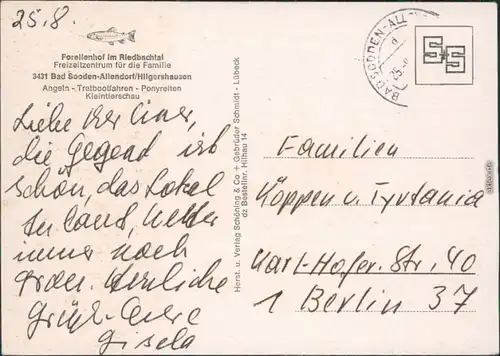 25.8.
Forellenhof im Riedbachtal
Freizeitzentrum für die Familie
3431 Bad Sooden-Allendorf/Hilgershausen
Angeln - Tretbootfahren - Ponyreiten
Kleintierschau
Liebe
die Gegend ist
schön, das Lokal
immer noch
Herzliche
Grüße
Gisela
Herst. u. Verlag Schöning & Co + Gebrüder Schmidt - Lübeck
dz Bestellnr. Hilhau 14
BAD SOODEN-ALL
25.
S+S
Familien
Köppen u. Tyrtania
Karl-Hofer-Str. 40
1 Berlin 37